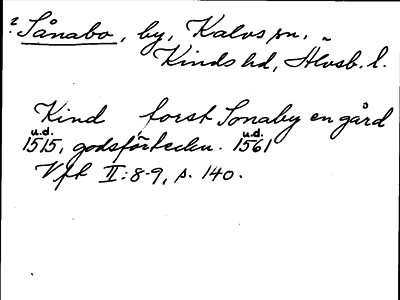 ? Sånabo, by, Kalvs sn.,
Kinds hd, Älvsb. l.
Kind forst Sonaby en gård
u.d. 1515, godsförteckn. u.d. 1561
Vfh II:8-9, s. 140.